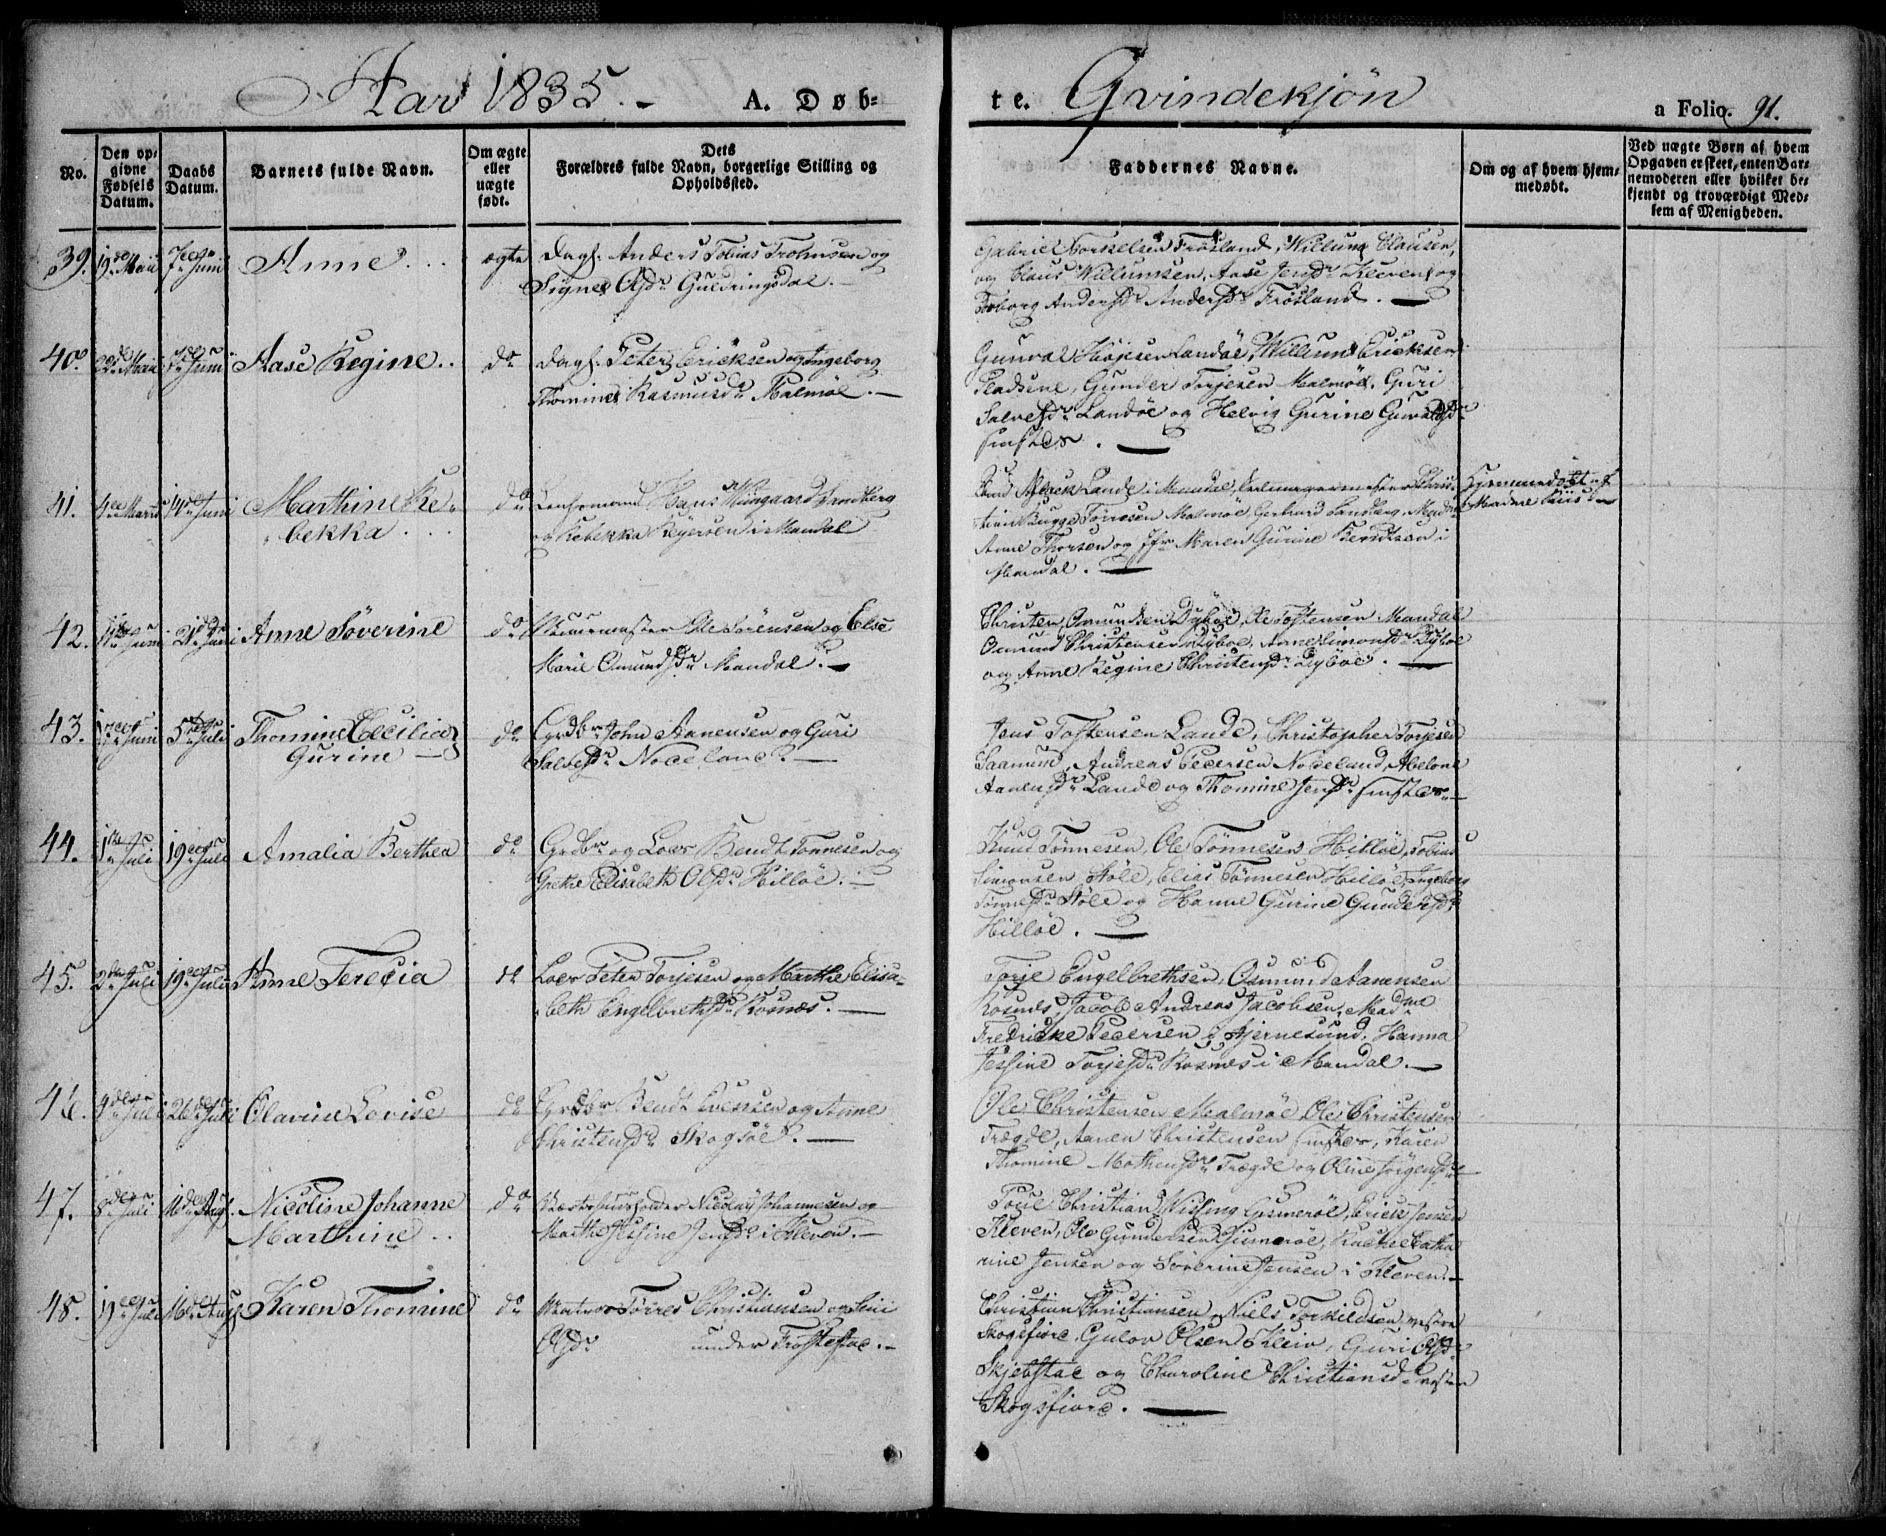 Aar 1835.- A. Døb=
te. Qvindekjøn a Folio. 91.
No.
Den op=
givne
Fødsels
Datum.
Daabs
Datum.
Barnets fulde Navn.
Om ægte
eller
uægte
født.
Dets
Forældres fulde Navn, borgerlige Stilling og
Opholdssted.
Faddernes Navne.
Om og af hvem hjem=
medøbt.
Ved uægte Børn af hvem
Opgaven er skeet, enten Bar=
nemoderen eller hvilket be=
kjendt og troværdigt Med=
lem af Menigheden.
39. 19de Maii 7de Juni Anne ægte Dagl. Anders Tobias Tronsen og
Signe Olsdr Guldringsdal.
Gabriel Torkelsen Frøsland, Willum Clausen,
og Claus Willumsen, Aase Jensdr Kleven og
Andersdr Frøsland.
40. 22de Maii 7de Juni Aase Regine do Dagl. Peter Ericksen og Ingeborg
Thomine Rasmusdr Malmøe.
Gunval Landøe, Willum Ericksen
Gunder Torjesen Malmøe, Guri
Salvesdr Landøe og Helvig Gurine Gunvaldsdr
sinstes.
41. 4de Martii 14de Juni Marthine Re=
bekka do Lensmand Hans Sandberg
og Rebekka Reyersen i Mandal
Knud Lande i Mandal, Chris=
tian Bugge Tørresen Malmøe, Gerhard Sandberg, Madme
Anne Thorsen og Jfr Maren Gurine Berntsen i
Mandal.
Hjemmedøbt af
Madme Riis
42. 11te Juni 21de Juni Anne Søverine do Ole Sørensen og Else
Marie Omundsdr Mandal.
Christen Omundsen Dyboe, Ole Tostensen Mandal
Omund Christensen Dyboe, Anne Simonsdr Dyboe
og Anne Regine Christensdr Dyboe.
43. 17de Juni 5te Juli Thomine Cecilia
Gurine do Grdbr John Aanensen og Guri
Salvesdr Nodeland.
Jens Tostensen Lande, Christopher Torjesen
Saanum, Andreas Pedersen Nodeland, Abelone
Aanensdr Lande og Thomine Jensdr sinstes.
44. 1te Juli 19de Juli Amalia Berthea do Grdbr og Lods Bendt Tønnesen og
Grethe Elisabeth Olsdr Hilløe.
Knud Tønnesen, Ole Tønnesen Hilløe, Tobias
Simonsen Støle, Elias Tønnesen Hilløe, Ingeborg
Tønnesdr Støle og Hanne Gurine Gundersdr
Hilløe.
45. 2den Juli 19de Juli Anne Terecia do Lods Peter Torjesen og Marthe Elisa=
beth Engelbrethsdr Rosnæs.
Torje Engelbrethsen, Osmund Aanensen
Rosnes, Jacob Andreas Jacobsen, Madme
Fredricke Pedersen i Hjernesund, Hanna
Jessine Torjesdr Rosnes i Mandal.
46. 9de Juli 26de Juli Olavine Lovise do Grdbr Bendt Svensen og Anne
Christensdr Skogsøe.
Ole Christensen Malmøe, Ole Christensen
Trægde, Aanen Christensen sinstes, Karen
Thomine Mathensdr Trægde og Oline Jørgensdr
47. 8de Juli 16de Aug. Nicoline Johanne
Marthine do Værtshuusholder Nicolay Johannesen og
Marthe Jessine Jensdr i Kleven.
Poul Christian Gismerøe, Erick Jensen
Kleven, Ole Gundersen Gismerøe, Rachel Catha
rine Jensen og Søverine Jensen i Kleven.
48. 19de Juli 16de Aug. Karen Thomine do Tørres Christiansen og Siri
Olsdr under Frøstestad.
Christian Christiansen, Niels Torkildsen vestre
Skogsfiord, Gulov Olsen Kleiv, Guri Olsdr
Skjebstad og Charoline Christiansdr vestre
Skogsfiord.